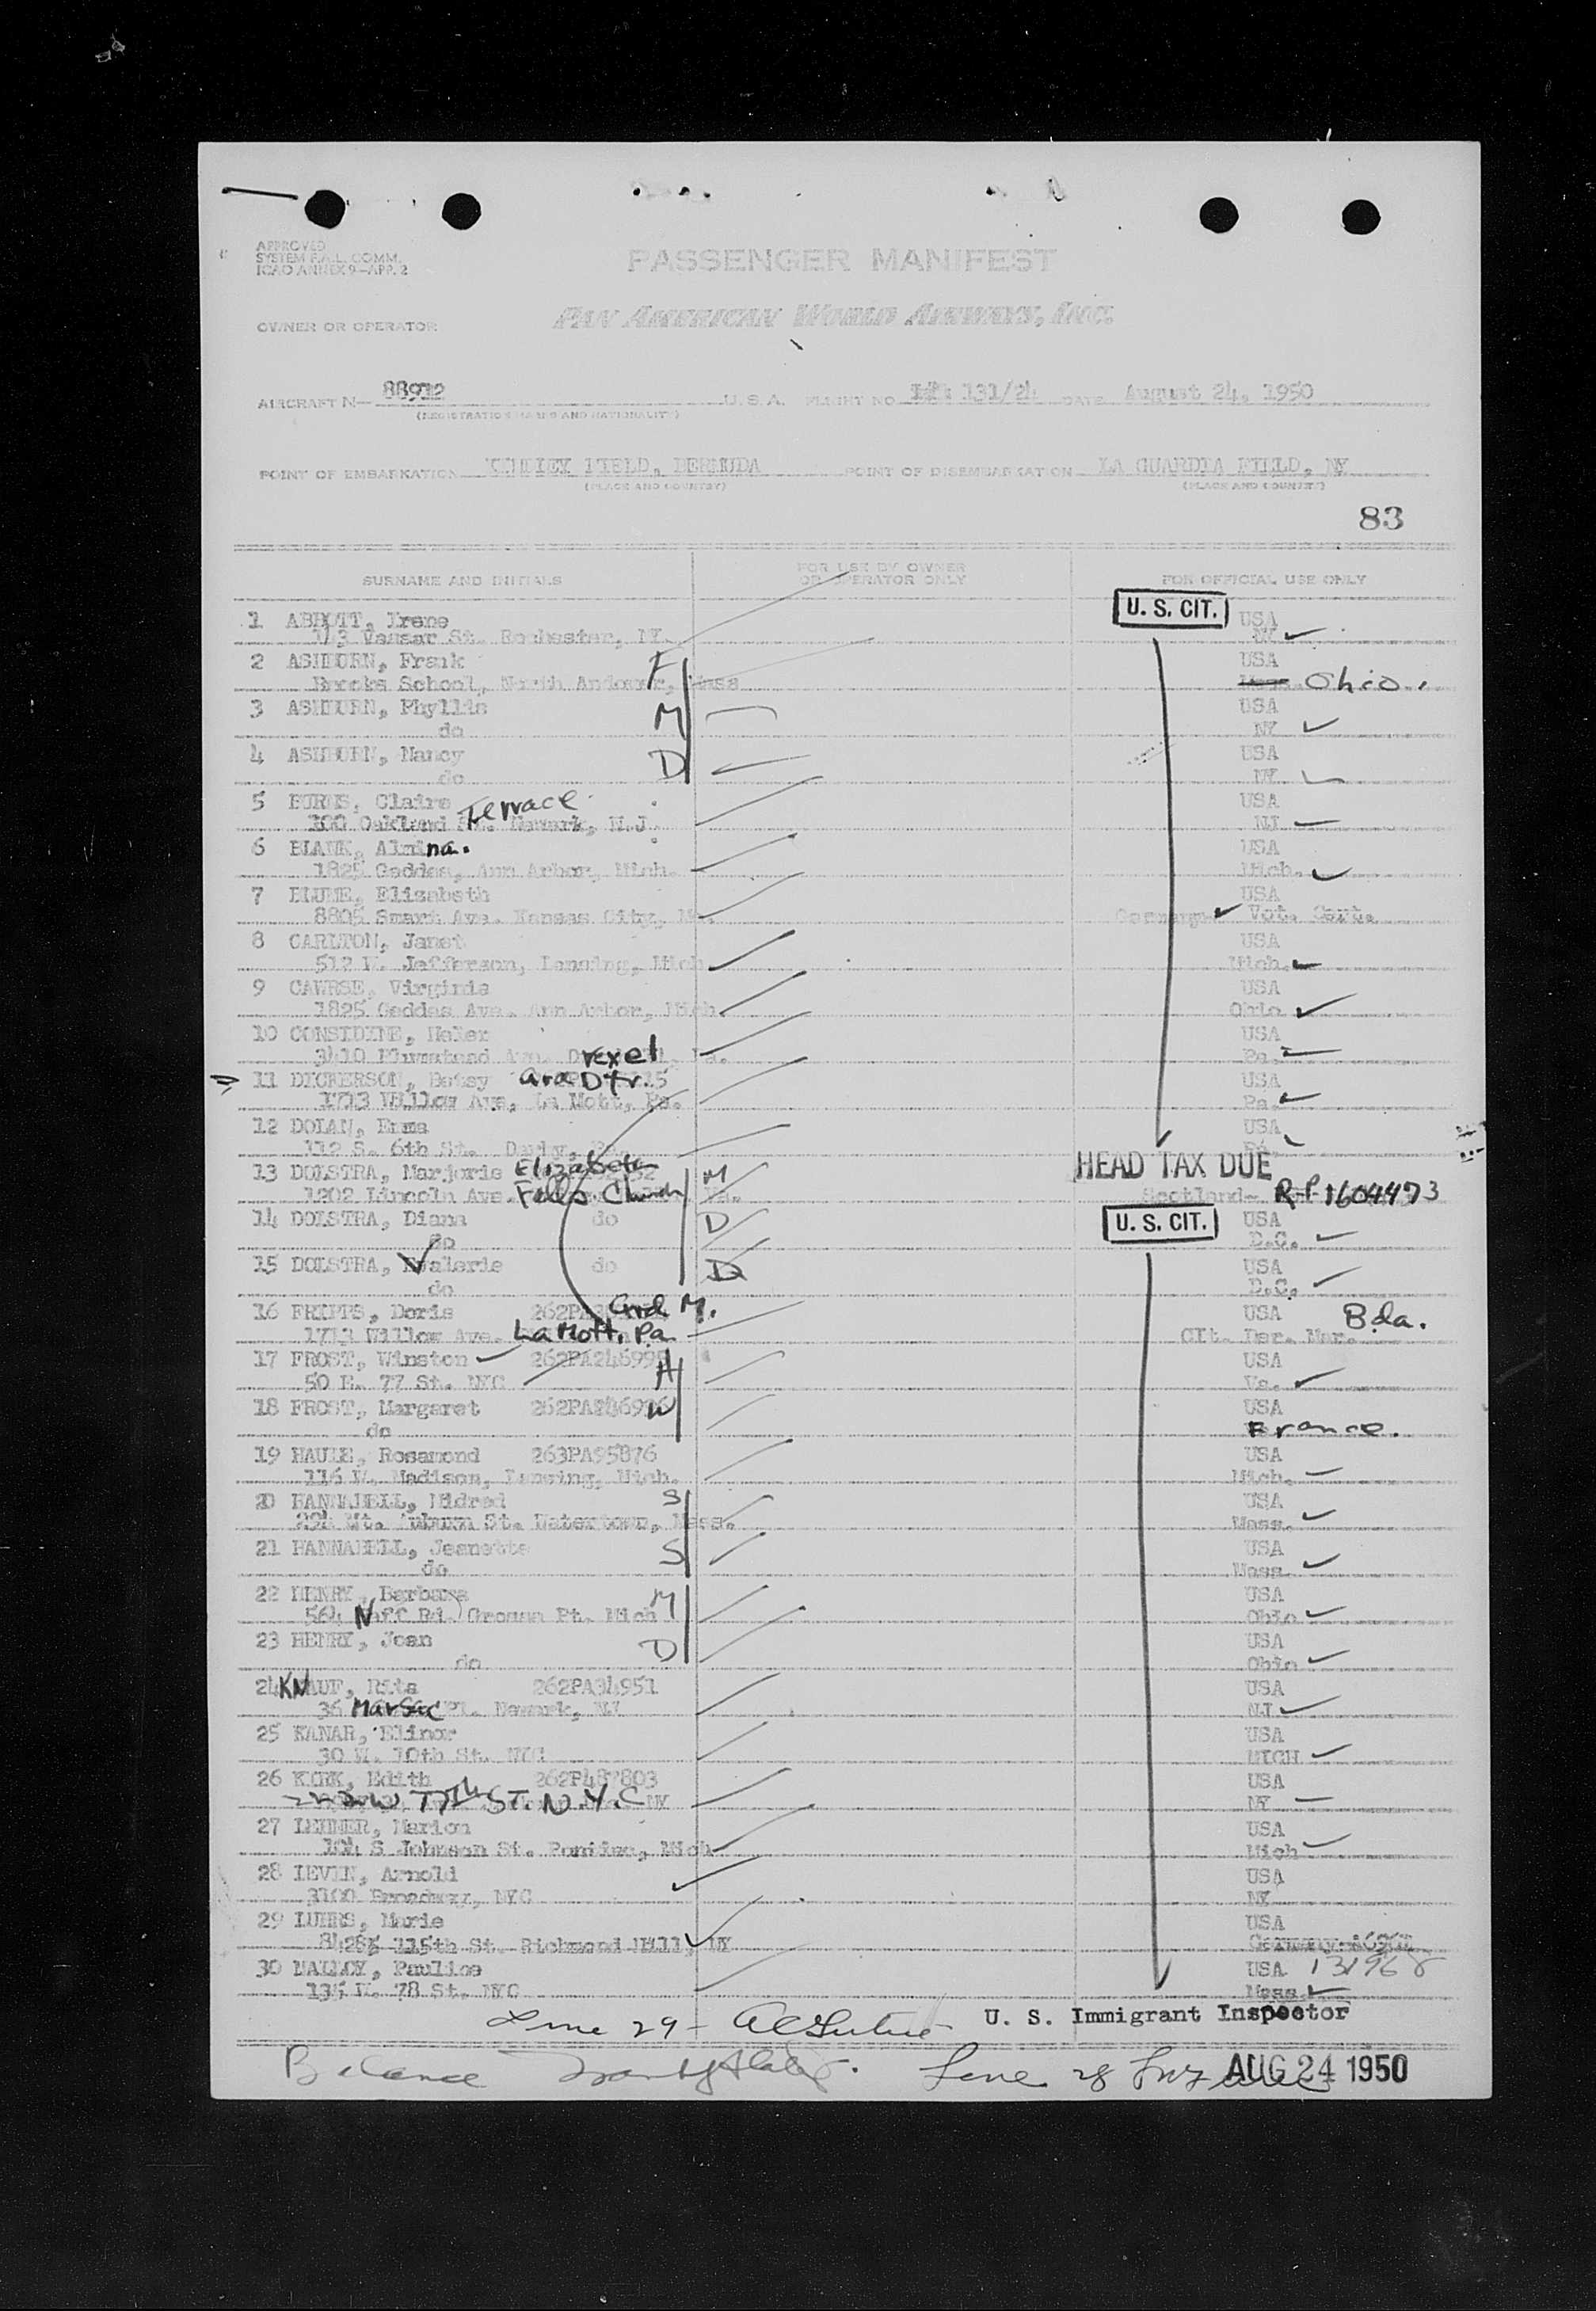 APPROVED
SYSTEM F.A.L. COMM.
ICAO ANNEX 9—APP. 2
PASSENGER MANIFEST
OWNER OR OPERATOR PAN AMERICAN WORLD AIRWAYS, INC.
AIRCRAFT N— 88912 U. S. A. FLIGHT NO 131/24 DATE August 24, 1950
(REGISTRATION MARKS AND NATIONALITY)
POINT OF EMBARKATION KINDLEY FIELD, BERMUDA POINT OF DISEMBARKATION LA GUARDIA FIELD, NY
(PLACE AND COUNTRY) (PLACE AND COUNTRY)
83
SURNAME AND INITIALS FOR USE BY OWNER OR OPERATOR ONLY FOR OFFICIAL USE ONLY
1 ABBOTT, Irene U. S. CIT. USA
Vassar St. Rochester, NY. NY
2 ASHBURN, Frank F USA
Brooks School, North Andover, Mass Ohio.
3 ASHBURN, Phyllis M USA
do NY
4 ASHBURN, Nancy D USA
do NY
5 BURNS, Claire Terrace USA
100 Oakland St. Newark, N.J. NJ
6 BLANK, Almina. USA
1825 Geddes, Ann Arbor, Mich. Mich.
7 BLUME, Elizabeth USA
8805 Smart Ave. Kansas City, Germany Vot. Cert.
8 CARLTON, Janet USA
512 W. Jefferson, Lansing, Mich Mich.
9 CAWRSE, Virginia USA
1825 Geddes Ave. Ann Arbor, Mich. Ohio
10 CONSIDINE, Helen USA
3410 Plumstead Ave. Drexel Pa. Pa.
11 DICKERSON, Betsy Grd Dtr. USA
1713 Willow Ave, La Mott, Pa. Pa.
12 DOLAN, Emma USA
112 S. 6th St. Darby, Pa.
13 DOLSTRA, Marjorie Elizabeth M HEAD TAX DUE
1202 Lincoln Ave. Falls Church Va. Scotland- RP 1604473
14 DOLSTRA, Diana do D U. S. CIT. USA
do D.C.
15 DOLSTRA, Valerie do D USA
do D.C.
16 FRIPPS, Doris 262PA Grd M. USA Bda.
1713 Willow Ave. La Mott, Pa. CIt. Der. Mar.
17 FROST, Winston 262PA24699 H USA
50 E. 77 St. NYC Va.
18 FROST, Margaret 262PA W USA
do France.
19 HAULE, Rosamond 263PA95876 USA
116 W. Madison, Lansing, Mich. Mich.
20 HANNABELL, Mildred S USA
Mt. Auburn St. Watertown, Mass. Mass.
21 HANNABELL, Jeanette S USA
do Mass.
22 HENRY, Barbara M USA
564 Neff Rd. Grosse Pt. Mich Ohio
23 HENRY, Joan D USA
do Ohio
24 KNAUF, Rita 262PA34951 USA
36 Marsac Pl. Newark, NJ NJ
25 KANAR, Elinor USA
30 W. 10th St. NYC MICH
26 KIRK, Edith 262P487803 USA
W 77th ST. N.Y.C NY NY
27 LEHNER, Marion USA
S Johnson St. Pontiac, Mich Mich
28 LEVIN, Arnold USA
3100 Broadway, NYC NY
29 LUHRS, Marie USA
115th St. Richmond Hill, NY Germany
30 MALLOY, Pauline USA 131968
135 W. 78 St. NYC Mass
Line 29 - U. S. Immigrant Inspector
Balance Line 28 AUG 24 1950